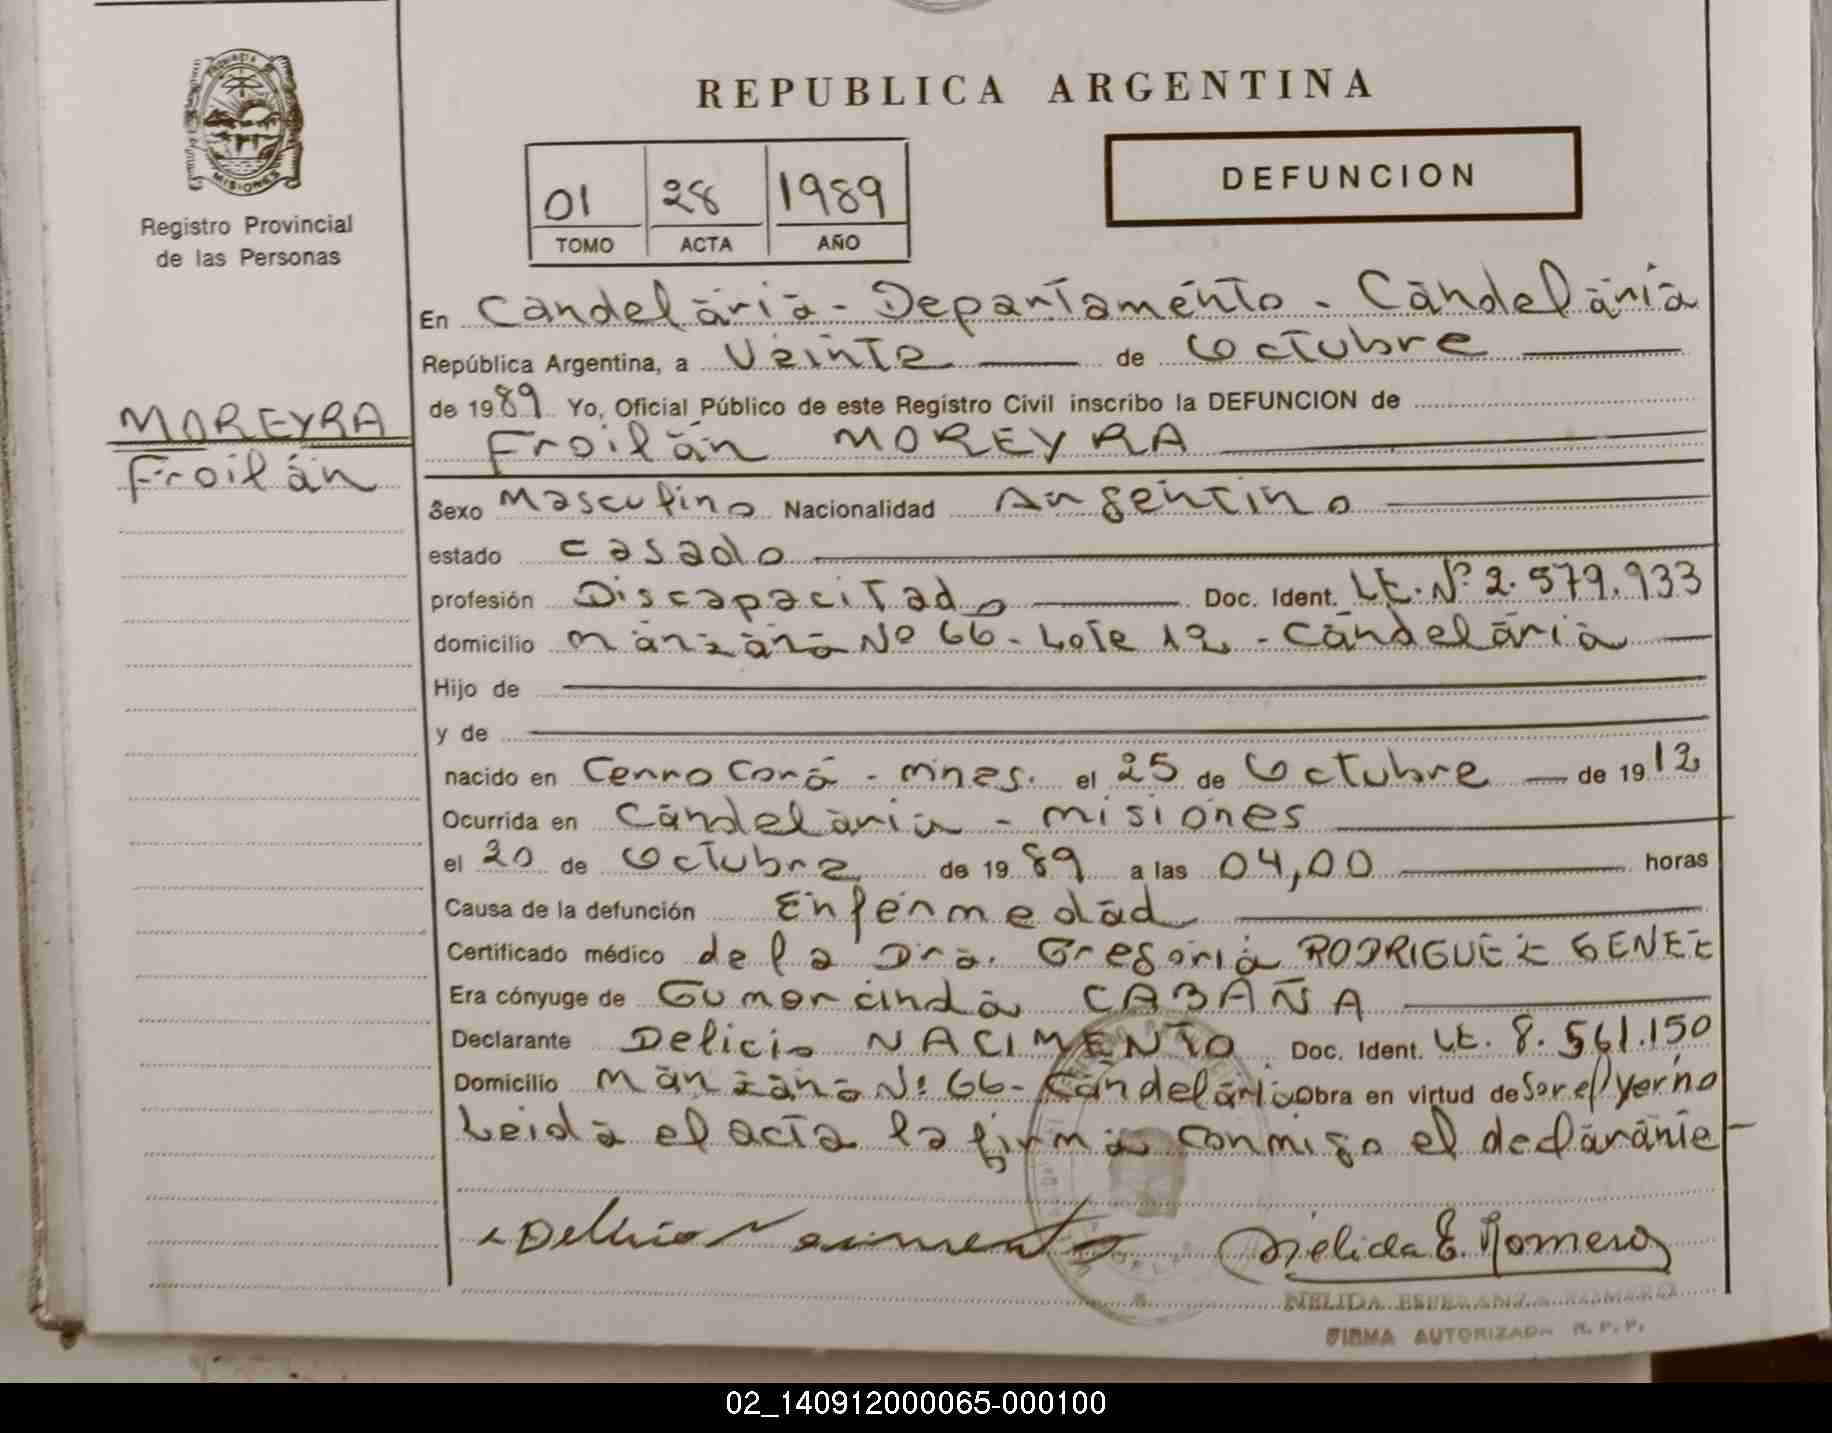 PROVINCIA DE
MISIONES
Registro Provincial
de las Personas
REPUBLICA ARGENTINA
DEFUNCION
01 28 1989
TOMO ACTA AÑO
En Candelaria - Departamento - Candelaria
República Argentina, a Veinte de Octubre
de 1989 Yo, Oficial Público de este Registro Civil inscribo la DEFUNCION de
MOREYRA
Froilán
Froilán MOREYRA
Sexo Masculino Nacionalidad Argentino
estado casado
profesión Discapacitado Doc. Ident. L.E. Nº 2.579.933
domicilio Manzana Nº 66 - Lote 12 - Candelaria
Hijo de
y de
nacido en Cerro Corá - Mnes. el 25 de Octubre de 1912
Ocurrida en Candelaria - Misiones
el 20 de Octubre de 1989 a las 04,00 horas
Causa de la defunción Enfermedad
Certificado médico de la Dra. Gregoria RODRIGUEZ GENEZ
Era cónyuge de Gumercinda CABAÑA
Declarante Delicio NACIMENTO Doc. Ident. L.E. 8.561.150
Domicilio Manzana Nº 66 - Candelaria Obra en virtud de Ser el yerno
Leida el acta la firma conmigo el declarante -
Delicio Nacimento Nelida E. Romero
NELIDA ESPERANZA ROMERO
FIRMA AUTORIZADA R. P. P.
02_140912000065-000100